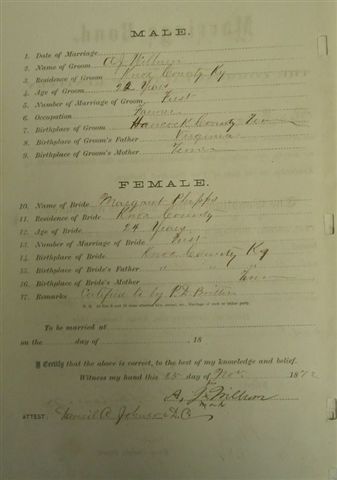 MALE.
1. Date of Marriage
2. Name of Groom A J
3. Residence of Groom Knox County Ky
4. Age of Groom 22 Years
5. Number of Marriage of Groom First
6. Occupation Farmer
7. Birthplace of Groom Hancock County Tenn
8. Birthplace of Groom's Father Virginia
9. Birthplace of Groom's Mother Tenn
FEMALE.
10. Name of Bride Margaret Phipps
11. Residence of Bride Knox County
12. Age of Bride 24 Years
13. Number of Marriage of Bride First
14. Birthplace of Bride Knox County Ky
15. Birthplace of Bride's Father " " "
16. Birthplace of Bride's Mother Tenn
17. Remarks Certified to by P. D.
To be married at
on the day of 18
I Certify that the above is correct, to the best of my knowledge and belief.
Witness my hand this 25 day of Nov. 1872
A. J.
mark
ATTEST: A. Johnson D.C.